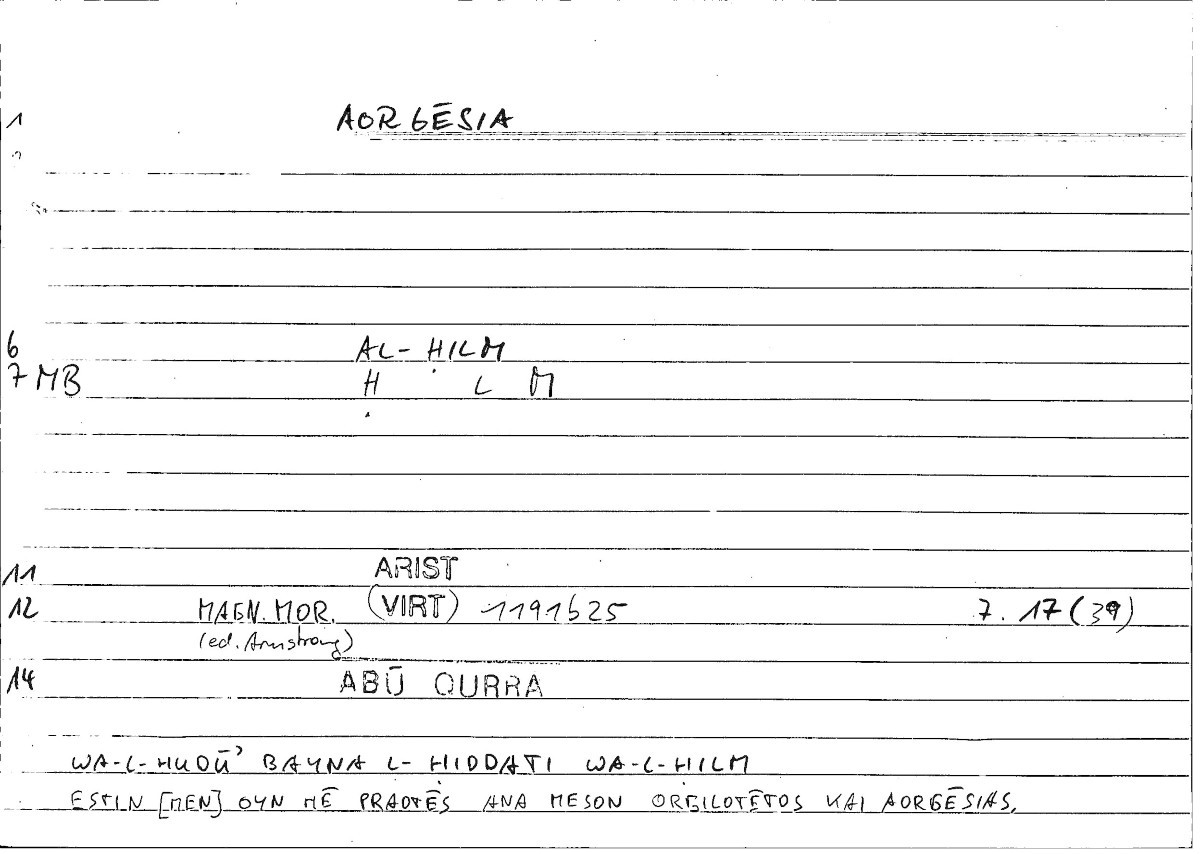 1 AORGĒSIA
6 AL-ḤILM
7 MB Ḥ L M
11 ARIST
12 MAGN. MOR. (VIRT) 1191b25 7. 17 (39)
(ed. Armstrong)
14 ABŪ QURRA
WA-L-HUDŪʾ BAYNA L-ḤIDDATI WA-L-ḤILM
ESTIN [MEN] OYN HĒ PRAOTĒS ANA MESON ORGILOTĒTOS KAI AORGĒSIAS,